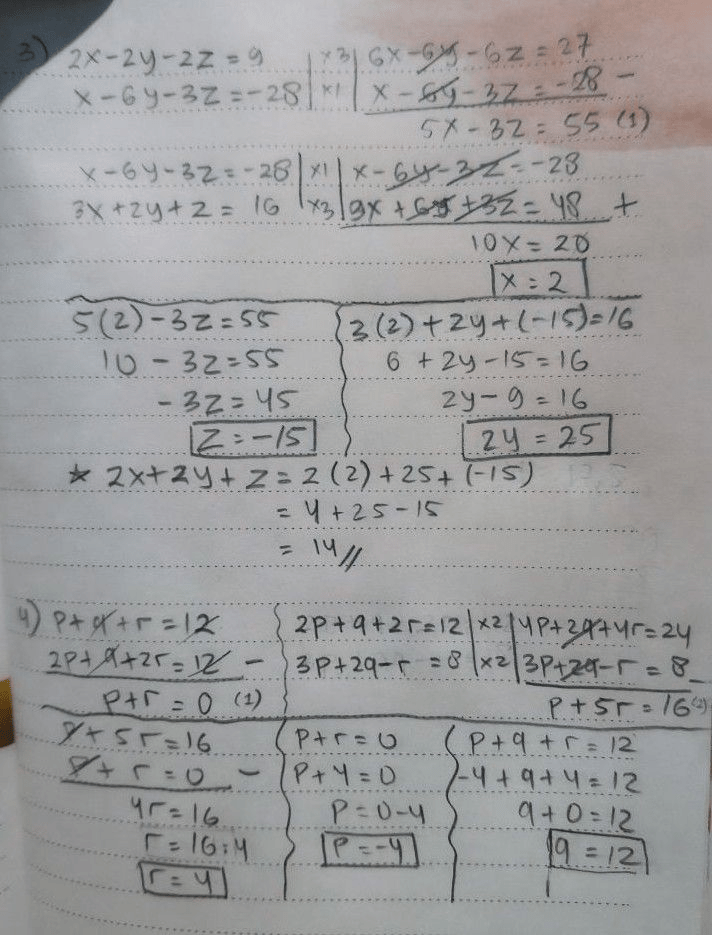 3) 2x-2y-2z=9 |x3| 6x-6y-6z=27
x-6y-3z=-28 |x1| x-6y-3z=-28 -
5x-3z=55 (1)
x-6y-3z=-28 |x1| x-6y-3z=-28
3x+2y+z=16 |x3| 9x+6y+3z=48 +
10x=20
x=2
5(2)-3z=55
10-3z=55
-3z=45
z=-15
3(2)+2y+(-15)=16
6+2y-15=16
2y-9=16
2y=25
* 2x+2y+z=2(2)+25+(-15)
=4+25-15
=14//
4) p+q+r=12
2p+q+2r=12 -
p+r=0 (1)
2p+q+2r=12 |x2| 4p+2q+4r=24
3p+2q-r=8 |x2| 3p+2q-r=8 -
p+5r=16(2)
p+5r=16
p+r=0 -
4r=16
r=16:4
r=4
p+r=0
p+4=0
p=0-4
p=-4
p+q+r=12
-4+q+4=12
q+0=12
q=12